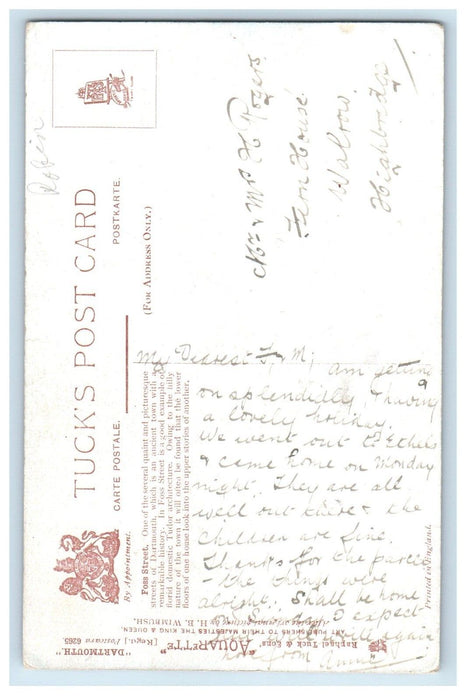 TUCK'S POST CARD
CARTE POSTALE.
POSTKARTE.
(FOR ADDRESS ONLY.)
By Appointment.
Robin
Mr & Mrs H Rogers
Fern House
Walrow
Highbridge
Foss Street. One of the several quaint and picturesque
streets of Dartmouth, which is an ancient town with a
remarkable history. In Foss Street is a good example of
florid domestic Tudor architecture. Owing to the hilly
nature of the town it will often be found that the lower
floors of one house look into the upper stories of another.
My Dearest F & M; am getting
on splendidly & having
a lovely holiday.
We went out to Ethels
& came home on Monday
night. They are all
well out there & the
children are fine.
Thanks for the parcel
- the things were
alright. Shall be home
expect-
again
love from Annie
Printed in England.
Raphael Tuck & Sons, "AQUARETTE" "DARTMOUTH"
ART PUBLISHERS TO THEIR MAJESTIES THE KING & QUEEN. [Regd.] Postcard 6265.
H. B. WIMBUSH.